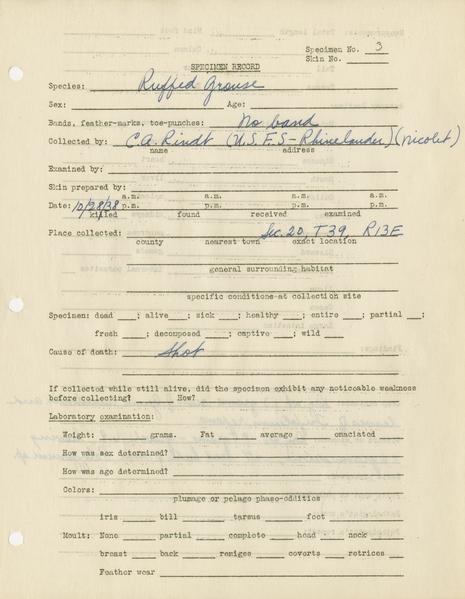 Specimen No. 3
Skin No.
SPECIMEN RECORD
Species: Ruffed Grouse
Sex: Age:
Bands, feather-marks, toe-punches: No band
Collected by: C.A. Rindt (U.S.F.S - Rhinelander) (Nicolet)
name address
Examined by:
Skin prepared by:
a.m. a.m. a.m. a.m.
Date: 10/28/38 p.m. p.m. p.m. p.m.
killed found received examined
Place collected: Sec. 20, T39, R13E
county nearest town exact location
general surrounding habitat
specific conditions at collection site
Specimen: dead ; alive ; sick ; healthy ; entire ; partial ;
fresh ; decomposed ; captive ; wild
Cause of death: Shot
If collected while still alive, did the specimen exhibit any noticeable weakness
before collecting? How?
Laboratory examination:
Weight: grams. Fat average emaciated
How was sex determined?
How was age determined?
Colors:
plumage or pelage phase-oddities
iris bill tarsus foot
Moult: None partial complete head neck
breast back remiges coverts retrices
Feather wear